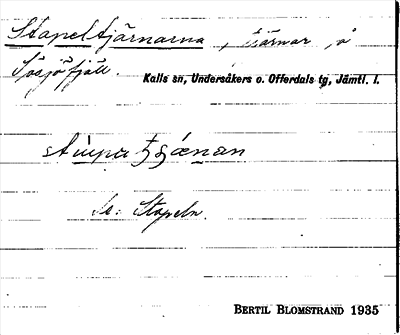 Stapeltjärnarna, tjärnar på
Sösjöfjäll.
Kalls sn, Undersåkers o. Offerdals tg, Jämtl. l.
Se: Stapeln.
BERTIL BLOMSTRAND 1935